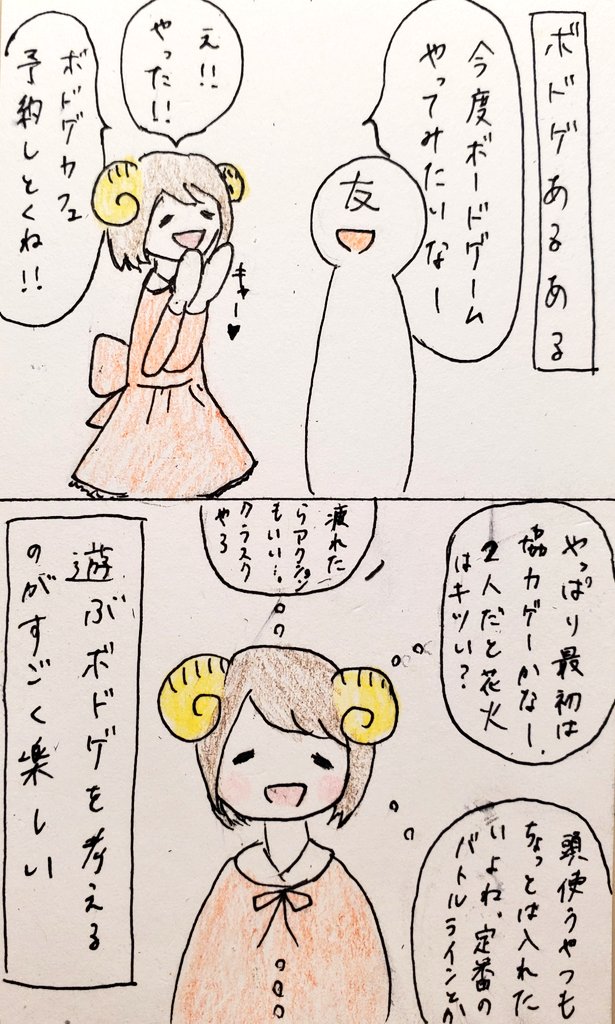 ボドゲあるある
今度ボードゲーム
やってみたいなー
友
え!!
やった!!
キャー♥
ボドゲカフェ
予約しとくね!!
やっぱり最初は
協力ゲーかなー、
2人だと花火
はキツい?
疲れた
らアクション
もいい…。
クラスク
やろ
頭使うやつも
ちょっとは入れた
いよね、定番の
バトルラインとか
遊ぶボドゲを考える
のがすごく楽しい